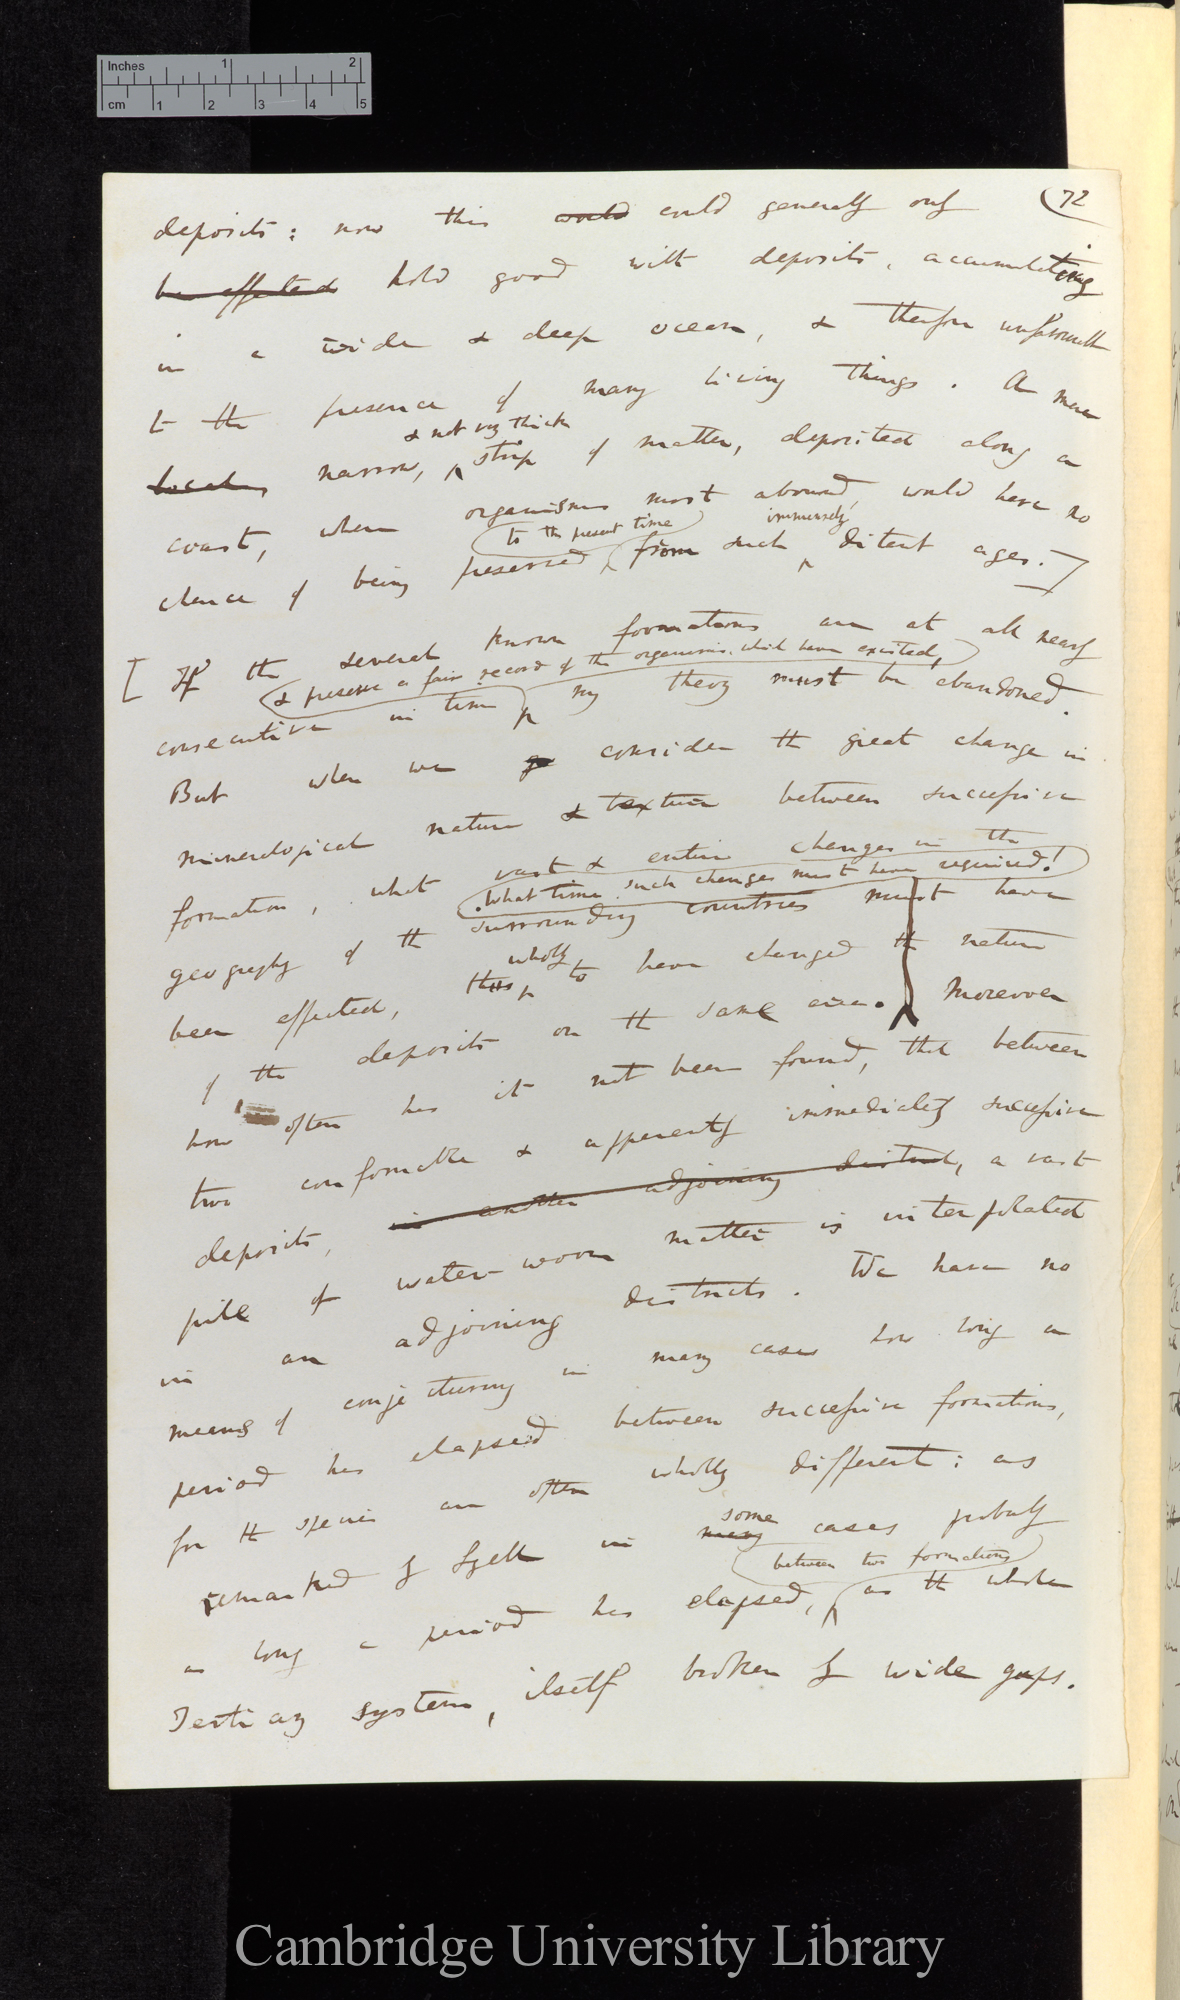 Inches 1 2
cm 1 2 3 4 5
72
deposits: now this would could generally only
be effected hold good with deposits, accumulating
in a wide & deep ocean, & therefore unfavourable
to the presence of many living things. A mere
& not very thick
local narrow, strip of matter, deposited along a
coast, where organisms most abound, would have no
to the present time immensely
chance of being preserved from such distant ages.
[If the several known formations are at all nearly
& preserve a fair record of the organisms which have existed,
consecutive in time my theory must be abandoned.
But when we consider the great change in
mineralogical nature & texture between successive
formation, what vast & entire changes in the
What time such changes must have required!
geography of the surrounding countries must have
wholly
been effected, thus to have changed the nature
of the deposits on the same area. Moreover
how often has it not been found, that between
two conformable & apparently immediately successive
deposits, in another adjoining district, a vast
pile of water-worn matter is interpolated
in an adjoining districts. We have no
means of conjecturing in many cases how long a
period has elapsed between successive formations,
for the species are often wholly different: as
some
remarked by Lyell in many cases probably
between two formations
as long a period has elapsed, as the whole
Tertiary system, itself broken by wide gaps.
Cambridge University Library